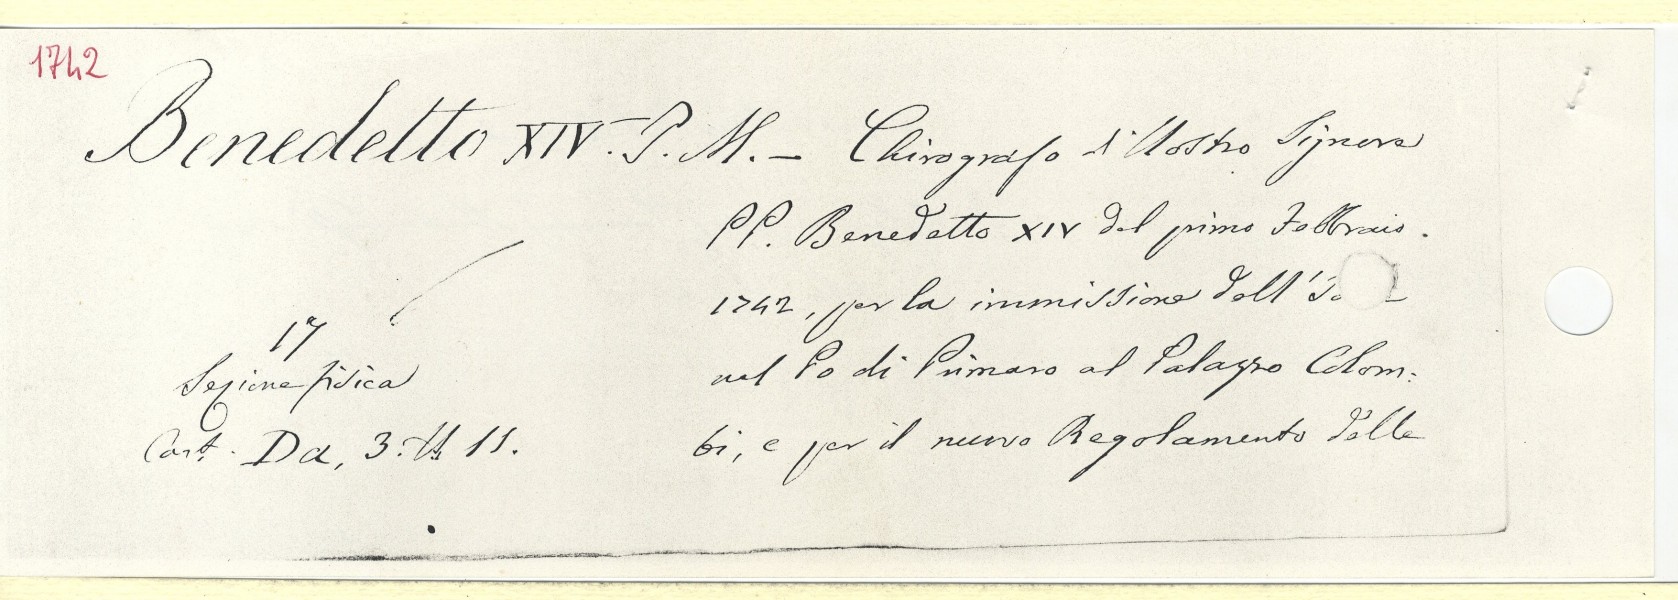 1742
Benedetto XIV. P. M. – Chirografo di Nostro Signore
PP. Benedetto XIV del primo Febbraio.
1742, per la immissione dell'
nel Po di Primaro al Palazzo Colom:
bi, e per il nuovo Regolamento delle
17
Sezione fisica
Cart. Da, 3. N. 11.